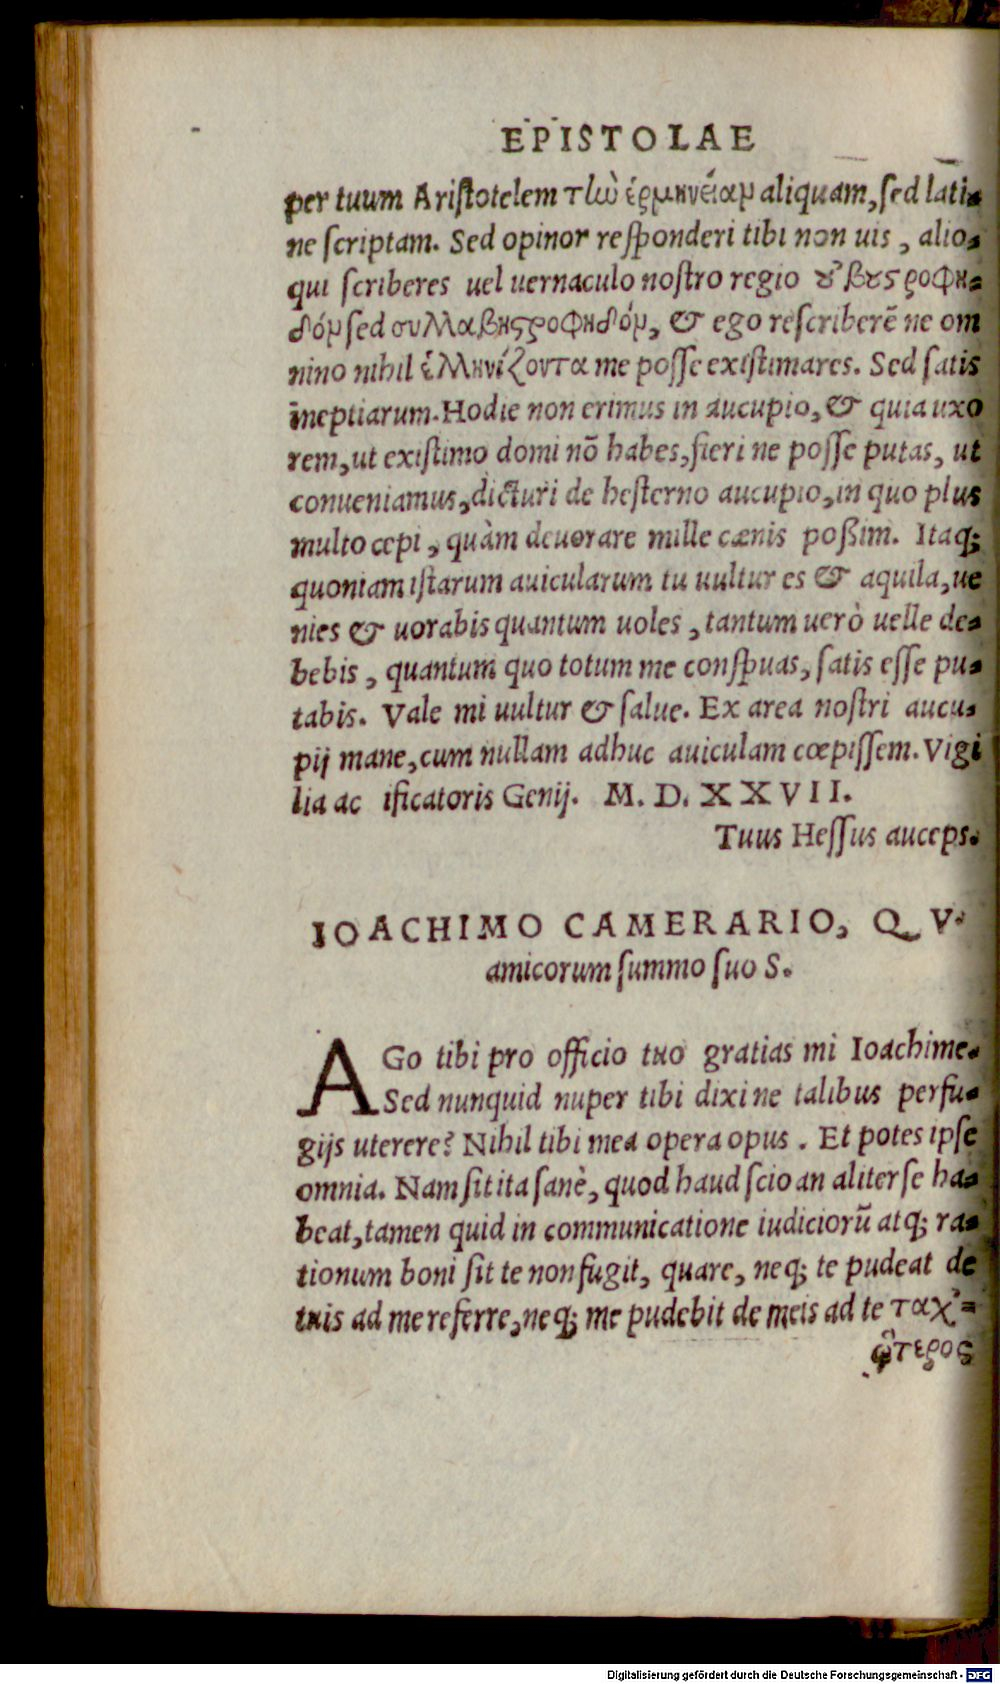 EPISTOLAE
per tuum Aristotelem τὴν ἑρμηνείαν aliquam, sed lati-
ne scriptam. Sed opinor responderi tibi non uis, alio-
qui scriberes uel uernaculo nostro regio οὐ βουςροφη-
δόν sed συλλαβηςροφηδόν, & ego rescriberē ne om
nino nihil ἑλληνίζοντα me posse existimares. Sed satis
ineptiarum. Hodie non erimus in aucupio, & quia uxo
rem, ut existimo domi nō habes, fieri ne posse putas, ut
conueniamus, dicturi de hesterno aucupio, in quo plus
multo cepi, quàm deuorare mille cænis poßim. Itaq;
quoniam istarum auicularum tu uultur es & aquila, ue
nies & uorabis quantum uoles, tantum uerò uelle de-
bebis, quantum quo totum me conspuas, satis esse pu-
tabis. Vale mi uultur & salue. Ex area nostri aucu-
pij mane, cum nullam adhuc auiculam cœpissem. Vigi
lia ac ificatoris Genij. M. D. XXVII.
Tuus Hessus auceps.
IOACHIMO CAMERARIO, Q V.
amicorum summo suo S.
AGo tibi pro officio tuo gratias mi Ioachime.
Sed nunquid nuper tibi dixi ne talibus perfu-
gijs uterere? Nihil tibi mea opera opus. Et potes ipse
omnia. Nam sit ita sanè, quod haud scio an aliter se ha-
beat, tamen quid in communicatione iudiciorū atq; ra-
tionum boni sit te non fugit, quare, neq; te pudeat de
tuis ad me referre, neq; me pudebit de meis ad te ταχ'-
ῴτερος
Digitalisierung gefördert durch die Deutsche Forschungsgemeinschaft - DFG